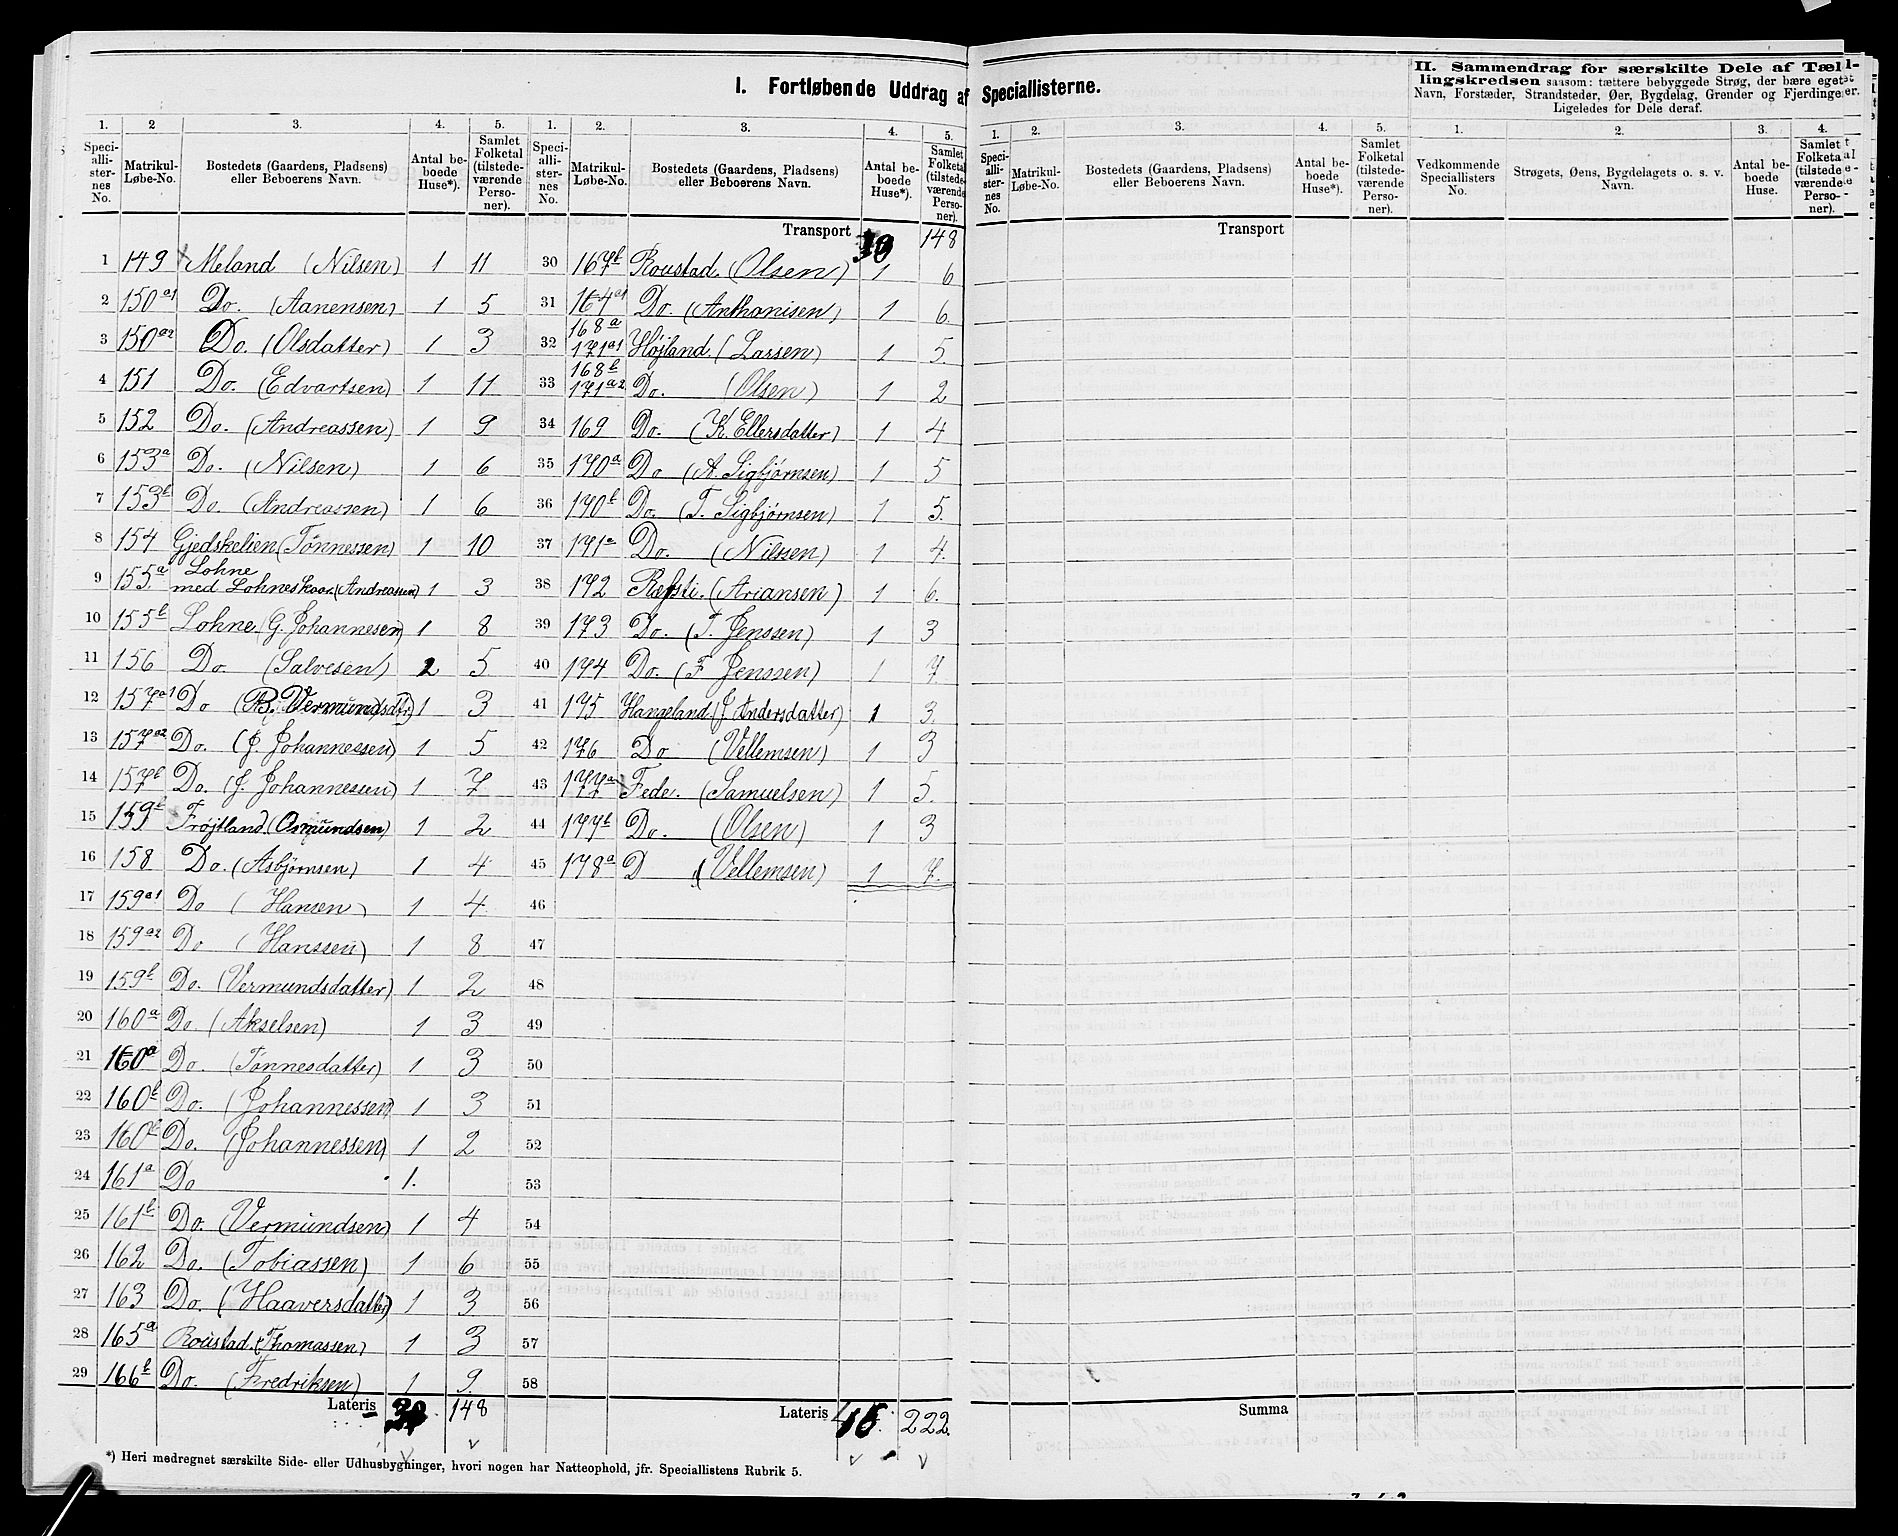 I. Fortløbende Uddrag af Speciallisterne.
II. Sammendrag for særskilte Dele af Tæl-
lingskredsen saasom: tættere bebyggede Strøg, der bære eget
Navn, Forstæder, Strandsteder, Øer, Bygdelag, Grender og Fjerdinger.
Ligeledes for Dele deraf.
1. 2 3. 4. 5.
Speci-alli-ster-nes No. Matrikul-Løbe-No. Bostedets (Gaardens, Pladsens) eller Beboerens Navn. Antal be-boede Huse*). Samlet Folketal (tilstede-værende Perso-ner).
1 149 Meland (Nilsen) 1 11
2 150a1 Do. (Aanensen) 1 5
3 150a2 Do. (Olsdatter) 1 3
4 151 Do. (Edvartsen) 1 11
5 152 Do. (Andreassen) 1 9
6 153a Do. (Nilsen) 1 6
7 153b Do. (Andreassen) 1 6
8 154 Gjedskelien (Tönnessen) 1 10
9 155a Lohne med Lohneskaar (Andreassen) 1 3
10 155b Lohne (G. Johannesen) 1 8
11 156 Do. (Salvesen) 2 5
12 157a1 Do (B. Vermundsdtr.) 1 3
13 157a2 Do. (J. Johannessen) 1 5
14 157b Do. (J. Johannesen) 1 7
15 159b Frøjtland (Osmundsen) 1 2
16 158 Do. (Asbjørnsen) 1 4
17 159a1 Do (Hansen) 1 4
18 159a2 Do (Hanssen) 1 8
19 159b Do. (Vermundsdatter) 1 2
20 160a Do (Akselsen) 1 3
21 160a Do. (Tönnesdatter) 1 3
22 160b Do. (Johannessen) 1 3
23 160b Do. (Johannessen) 1 2
24 161a Do 1.
25 161b Do. (Vermundsen) 1 4
26 162 Do. (Tobiassen) 1 6
27 163 Do. (Haaversdatter) 1 3
28 165a Roustad. (Thomassen) 1 3
29 166b Do. (Fredriksen) 1 9.
Lateris 148
*) Heri medregnet særskilte Side- eller Udhusbygninger, hvori nogen har Natteophold, jfr. Speciallistens Rubrik 5.
1. 2. 3. 4. 5.
Speci-alli-ster-nes No. Matrikul-Løbe-No. Bostedets (Gaardens, Pladsens) eller Beboerens Navn. Antal be-boede Huse*). Samlet Folketal (tilstede-værende Perso-ner).
Transport 30 148
30 167b Roustad. (Olsen) 1 6
31 164a1 Do. (Anthonisen) 1 6.
32 168a 171a1 Højland. (Larsen) 1 5.
33 168b 171a2 Do. (Olsen) 1 2
34 169 Do. (K. Ellersdatter) 1 4
35 170a Do (A. Sigbjørnsen) 1 5
36 170b Do. (T. Sigbjørnsen) 1 5.
37 171a Do. (Nilssen) 1 4.
38 172 Ræfsti. (Ariansen) 1 6.
39 173 Do. (T. Jenssen) 1 3
40 174 Do. (F Jenssen) 1 7.
41 175 Hangeland. (J. Andersdatter) 1 3.
42 176 Do (Vellemsen) 1 3
43 177a Fede. (Samuelsen) 1 5.
44 177b Do. (Olsen) 1 3
45 178a D (Vellemsen) 1 7.
46
47
48
49
50
51
52
53
54
55
56
57
58
Lateris 222.
1. 2. 3. 4. 5.
Speci-alli-ster-nes No. Matrikul-Løbe-No. Bostedets (Gaardens, Pladsens) eller Beboerens Navn. Antal be-boede Huse*). Samlet Folketal (tilstede-værende Perso-ner).
Transport
Summa
1. 2. 3. 4.
Vedkommende Speciallisters No. Strøgets, Øens, Bygdelagets o. s. v. Navn. Antal be-boede Huse. Samlet Folketal (tilstede-værende Perso-ner).